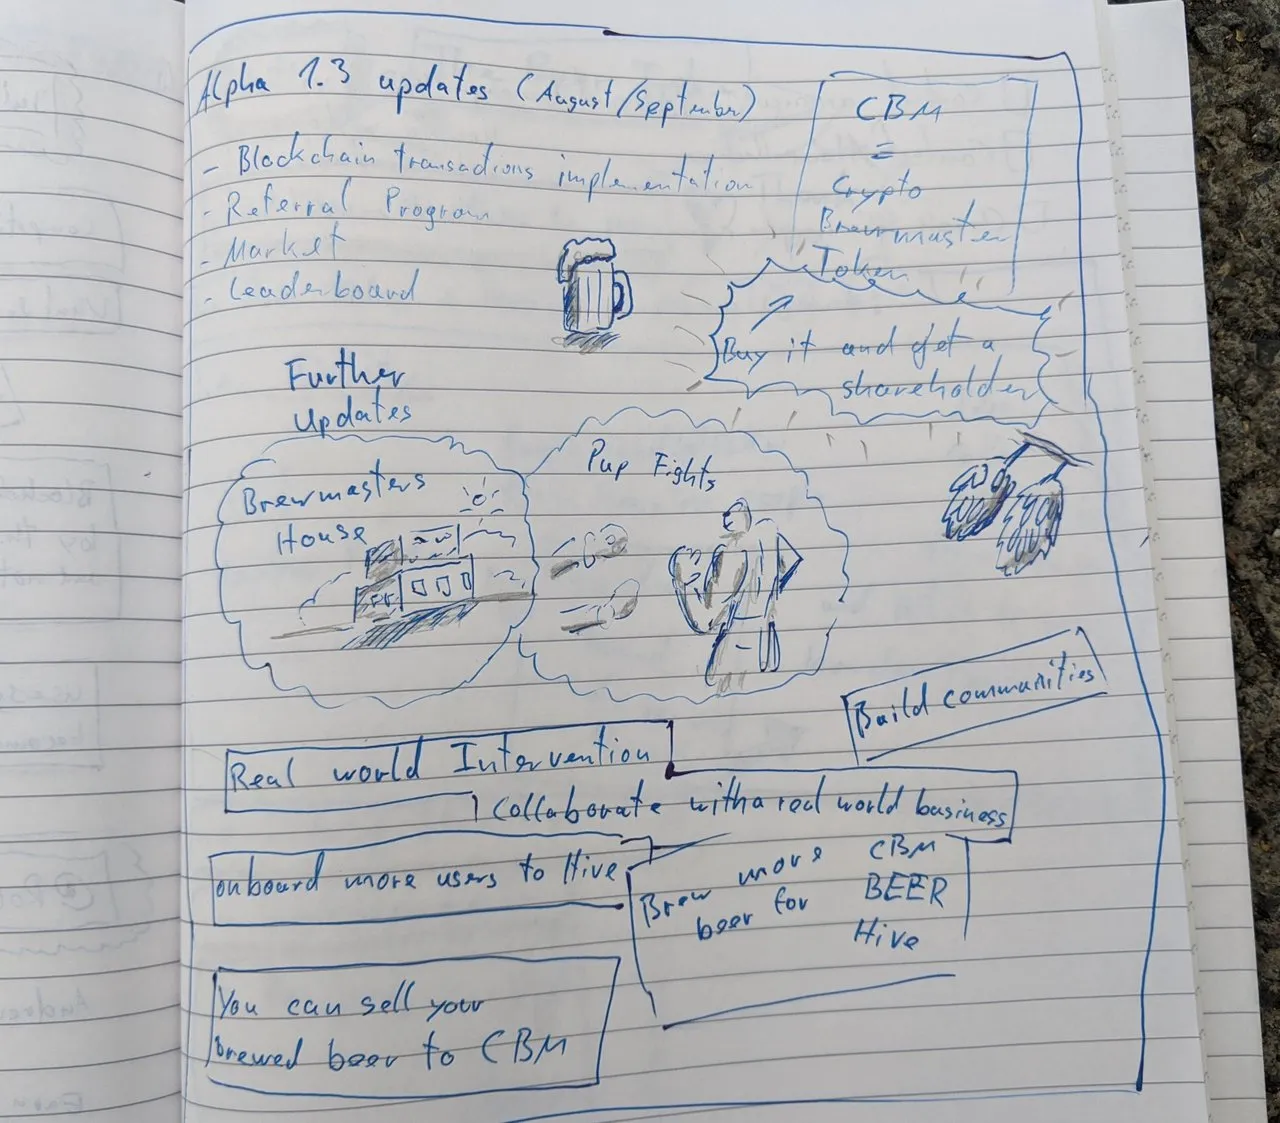 Alpha 1.3 updates (August/September)
- Blockchain transactions implementation
- Referral Program
- Market
- Leaderboard
CBM
=
Crypto
Brewmaster
Token
Buy it and get a
shareholder
Further
updates
Brewmasters
House
Pup Fights
Build communities
Real world Intervention
Collaborate with a real world business
onboard more users to Hive
Brew more
beer for
CBM
BEER
Hive
You can sell your
brewed beer to CBM